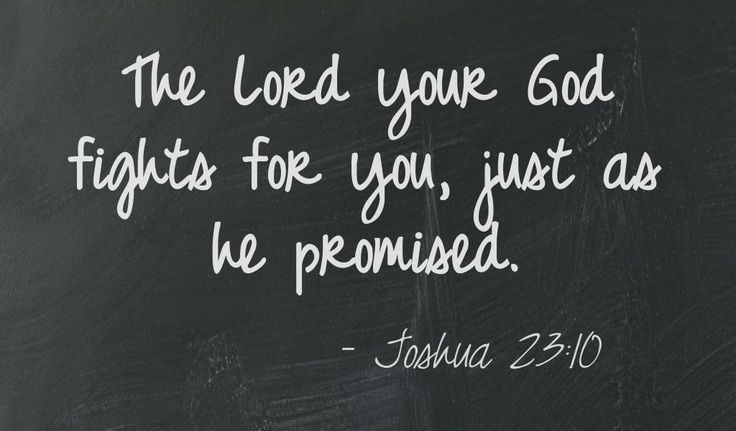 The Lord your God
fights for you, just as
he promised.
- Joshua 23:10